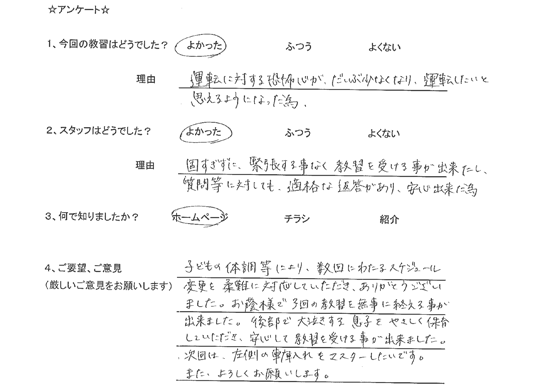 ☆アンケート☆
1、今回の教習はどうでした？ よかった ふつう よくない
理由 運転に対する恐怖心が、だいぶ少なくなり、運転したいと
思えるようになった為、
2、スタッフはどうでした？ よかった ふつう よくない
理由 固すぎずに、緊張する事なく教習を受ける事が出来たし、
質問等に対しても、適格な返答があり、安心出来た為
3、何で知りましたか？ ホームページ チラシ 紹介
4、ご要望、ご意見 子どもの体調等により、数回にわたるスケジュール
(厳しいご意見をお願いします) 変更を柔難に対応していただき、ありがとうござい
ました。お陰様で3回の教習を無事に終える事が
出来ました。後部で大泣きする息子をやさしく保合
していただき、安心して教習を受ける事が出来ました。
次回は、左側の車庫入れをマスターしたいです。
また、よろしくお願いします。